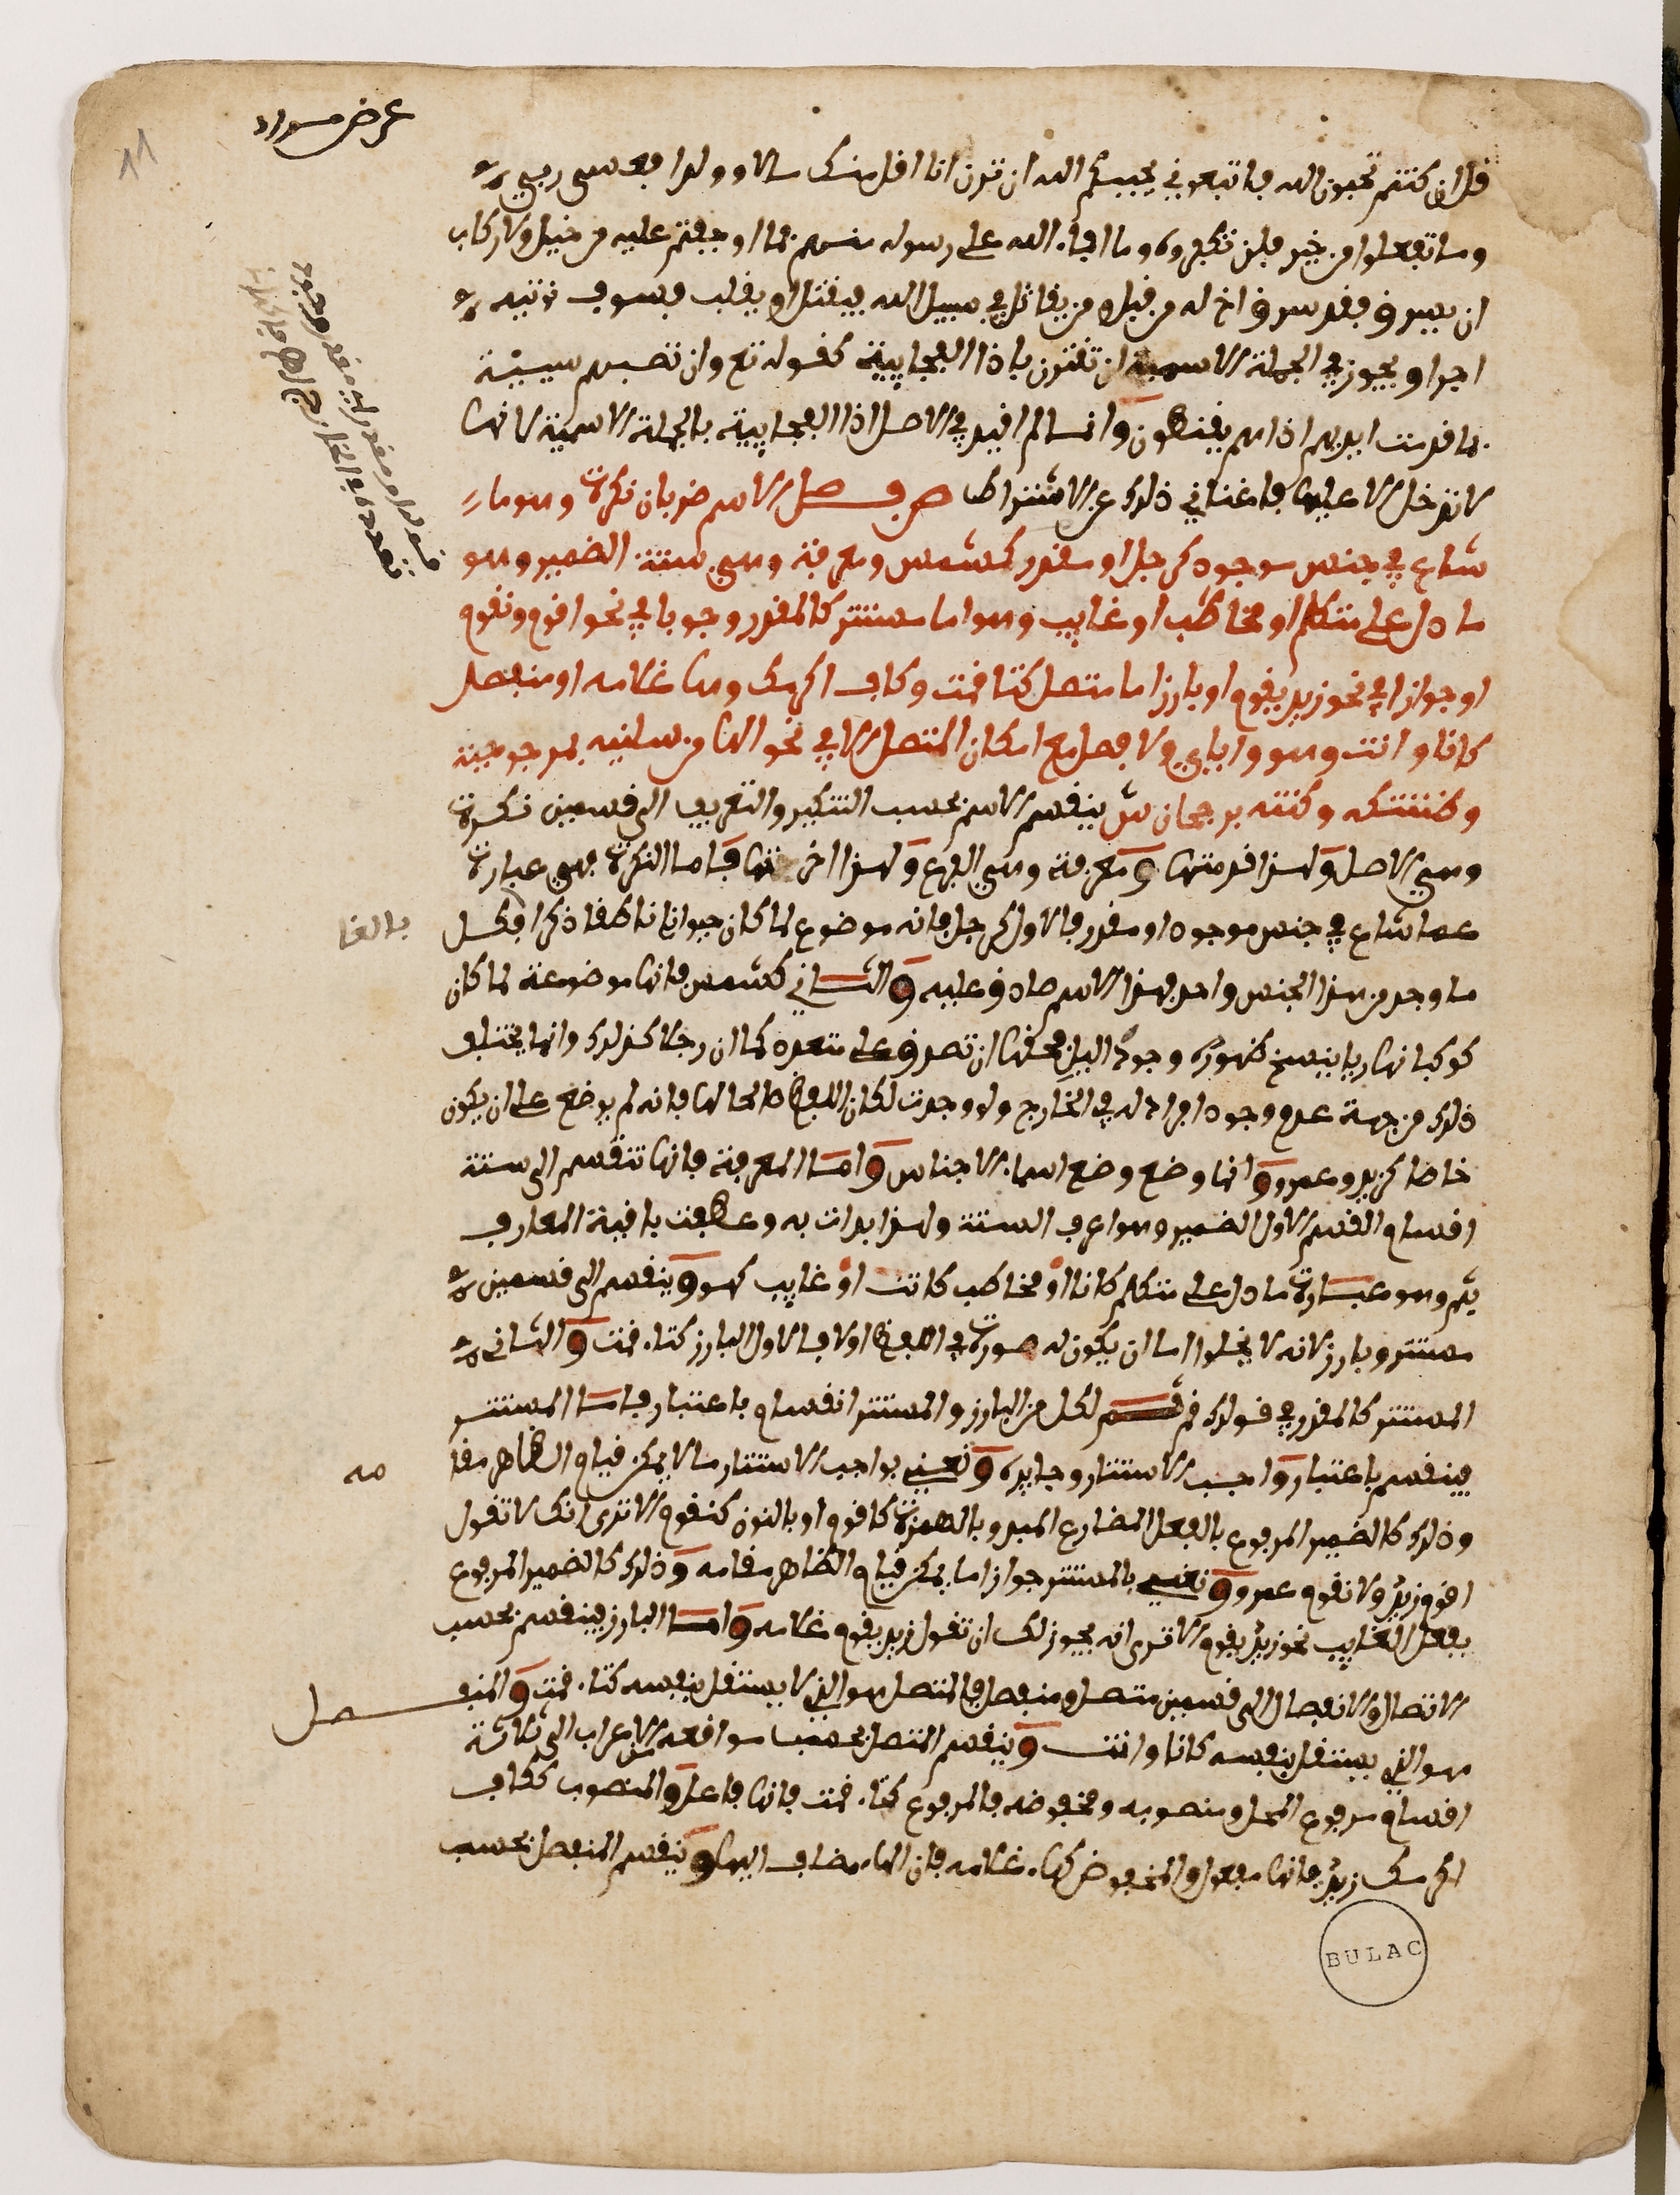 عرض مسودد
11
قل ان كنتم تحبون الله فاتبعوني يحببكم الله ان ترن انا اقل منك مالا وولدا فعسى ربي
وما تفعلوا من خير فلن تكفروه وما افاء الله على رسوله منهم فما اوجفتم عليه من خيل ولا ركاب
ان يسرق فقد سرق اخ له من قبل ومن يقاتل في سبيل الله فيقتل او يغلب فسوف نوتيه
اجرا ويجوز في الجملة الاسمية ان تقترن باذا الفجايية كقوله تع وان تصبهم سيئة
بما قدمت ايديهم اذا هم يقنطون وانما لم اقيد في الاصل اذا الفجايية بالجملة الاسمية لانها
لا تدخل الا عليها فاغناني ذلك عن الاشتراط ص فصل الاسم ضربان نكرة وهو ما
شاع في جنس موجود كرجل او مقدر كشمس ومعرفة وهي ستة الضمير وهو
ما دل على متكلم او مخاطب او غايب وهو اما مستتر كالمقدر وجوبا في نحو اقوم ونقوم
او جوازا في نحو زيد يقوم او بارز اما متصل كتا قمت وكاف اكرمك وها غلامه او منفصل
كانا وانت وهو واياي ولا فصل مع امكان المتصل الا في نحو الها من سلنيه بمرجوحية
وظننتكه وكنته برجحان ش ينقسم الاسم بحسب التنكير والتعريف الى قسمين نكرة
وهي الاصل ولهذا قدمتها ومعرفة وهي الفرع ولهذا اخرتها فاما النكرة فهي عبارة
عما شاع في جنس موجود او مقدر فالاول كرجل فانه موضوع لما كان حيوانا ناطقا ذكرا فكل
بالغا
ما وجد من هذا الجنس واحد فهذا الاسم صادق عليه والثاني كشمس فانها موضوعة لما كان
كوكبا نهاريا ينسخ ظهوره وجود الليل فحقها ان تصدق على متعدد كما ان رجلا كذلك وانما يختلف
ذلك من جهة عدم وجود افراد له في الخارج ولو وجدت لكان اللفظ صالحا لها فانه لم يوضع على ان يكون
خاصا كزيد وعمرو وانما وضع وضع اسماء الاجناس واما المعرفة فانها تنقسم الى ستة
اقسام القسم الاول الضمير وهو اعرف الستة ولهذا بدات به وعطفت باقية المعارف
بثم وهو عبارة ما دل على متكلم كانا او مخاطب كانت او غايب كهو وينقسم الى قسمين
مستتر وبارز لانه لا يخلوا اما ان يكون له صورة في اللفظ او لا فالاول البارز كتاء قمت والثاني
المستتر كالمقدر في قولك قم ثم لكل من البارز والمستتر انقسام باعتبار فاما المستتر
فينقسم باعتبار واجب الاستتار وجايزه ونعني بواجب الاستتار ما لا يمكن قيام الظاهر مقا
مه
وذلك كالضمير المرفوع بالفعل المضارع المبدو بالهمزة كاقوم او بالنون كنقوم الا ترى انك لا تقول
اقوم زيد ولا نقوم عمرو ونعني بالمستتر جوازا ما يمكن قيام الظاهر مقامه وذلك كالضمير المرفوع
بفعل الغايب نحو زيد يقوم الا ترى انه يجوز لك ان تقول زيد يقوم غلامه واما البارز فينقسم بحسب
الاتصال والانفصال الى قسمين متصل ومنفصل فالمتصل هو الذي لا يستقل بنفسه كتاء قمت والمنفصل
هو الذي يستقل بنفسه كانا وانت وينقسم المتصل بحسب مواقعه من الاعراب الى ثلاثة
اقسام مرفوع المحل ومنصوبه ومخفوضه فالمرفوع كتاء قمت فانها فاعل والمنصوب ككاف
اكرمك زيد فانها مفعول والمخفوض كهاء غلامه فان الهاء مضاف اليها وينقسم المنفصل بحسب
BULAC